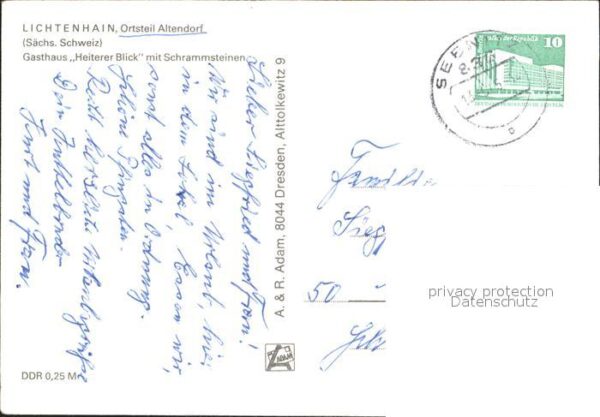 LICHTENHAIN, Ortsteil Altendorf
(Sächs. Schweiz)
Gasthaus „Heiterer Blick" mit Schrammsteinen
Lieber Siegfried und Frau!
Wir sind im Urlaub, hier
in dem Lokal Essen wir,
sonst alles in Ordnung.
Schöne Pfingsten.
Recht herzliche Urlaubsgrüße
Dein
und Frau.
A. & R. Adam, 8044 Dresden, Alttolkewitz 9
ADAM
DDR 0,25 M
der Republik
10
SEEN
Familie
Sieg
50
privacy protection
Datenschutz